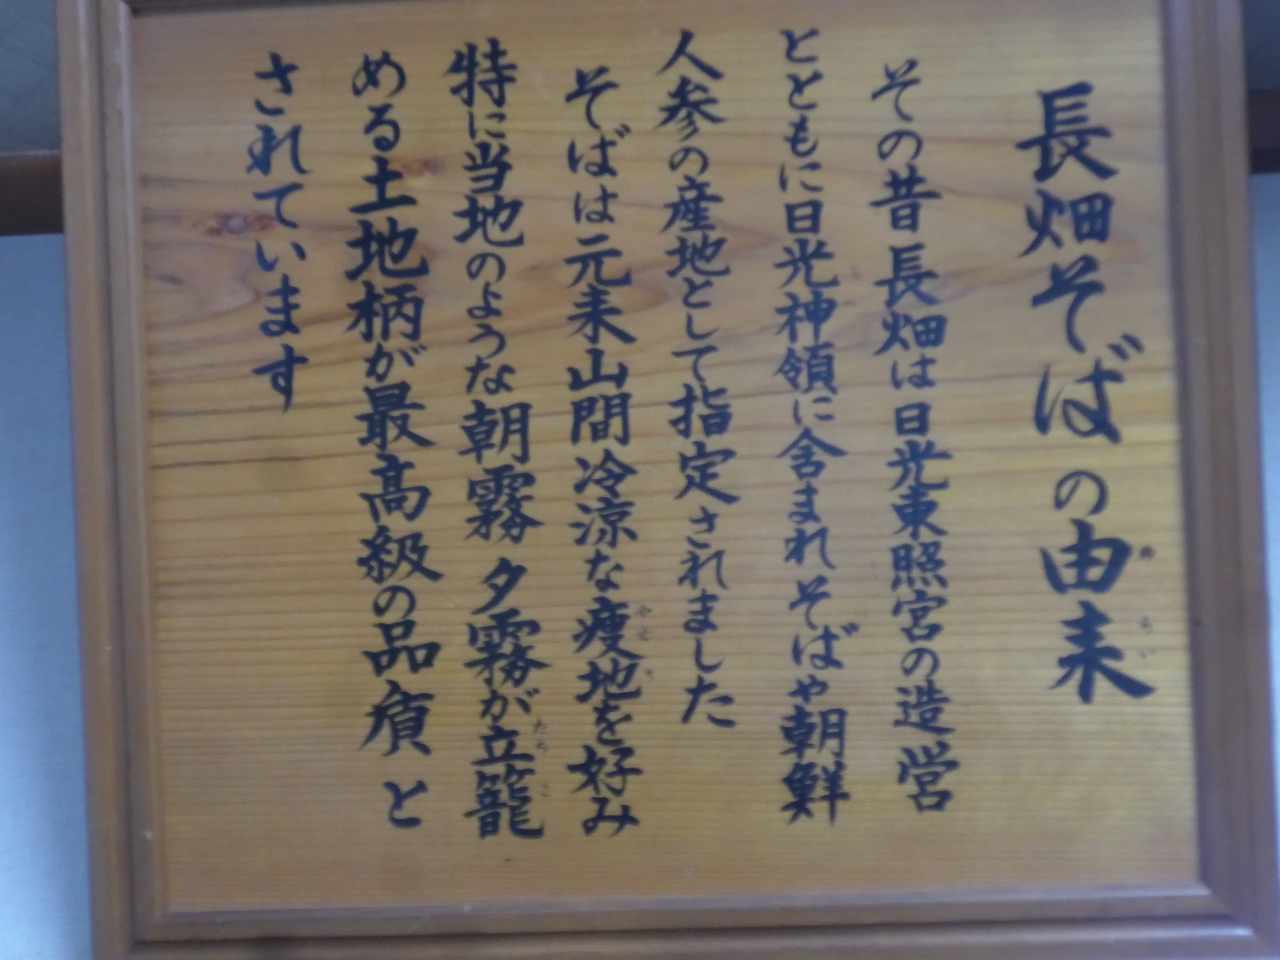 長畑そばの由来
その昔長畑は日光東照宮の造営
とともに日光神領に含まれそばや朝鮮
人参の産地として指定されました
そばは元来山間冷涼な痩地を好み
特に当地のような朝霧夕霧が立籠
める土地柄が最高級の品質と
されています